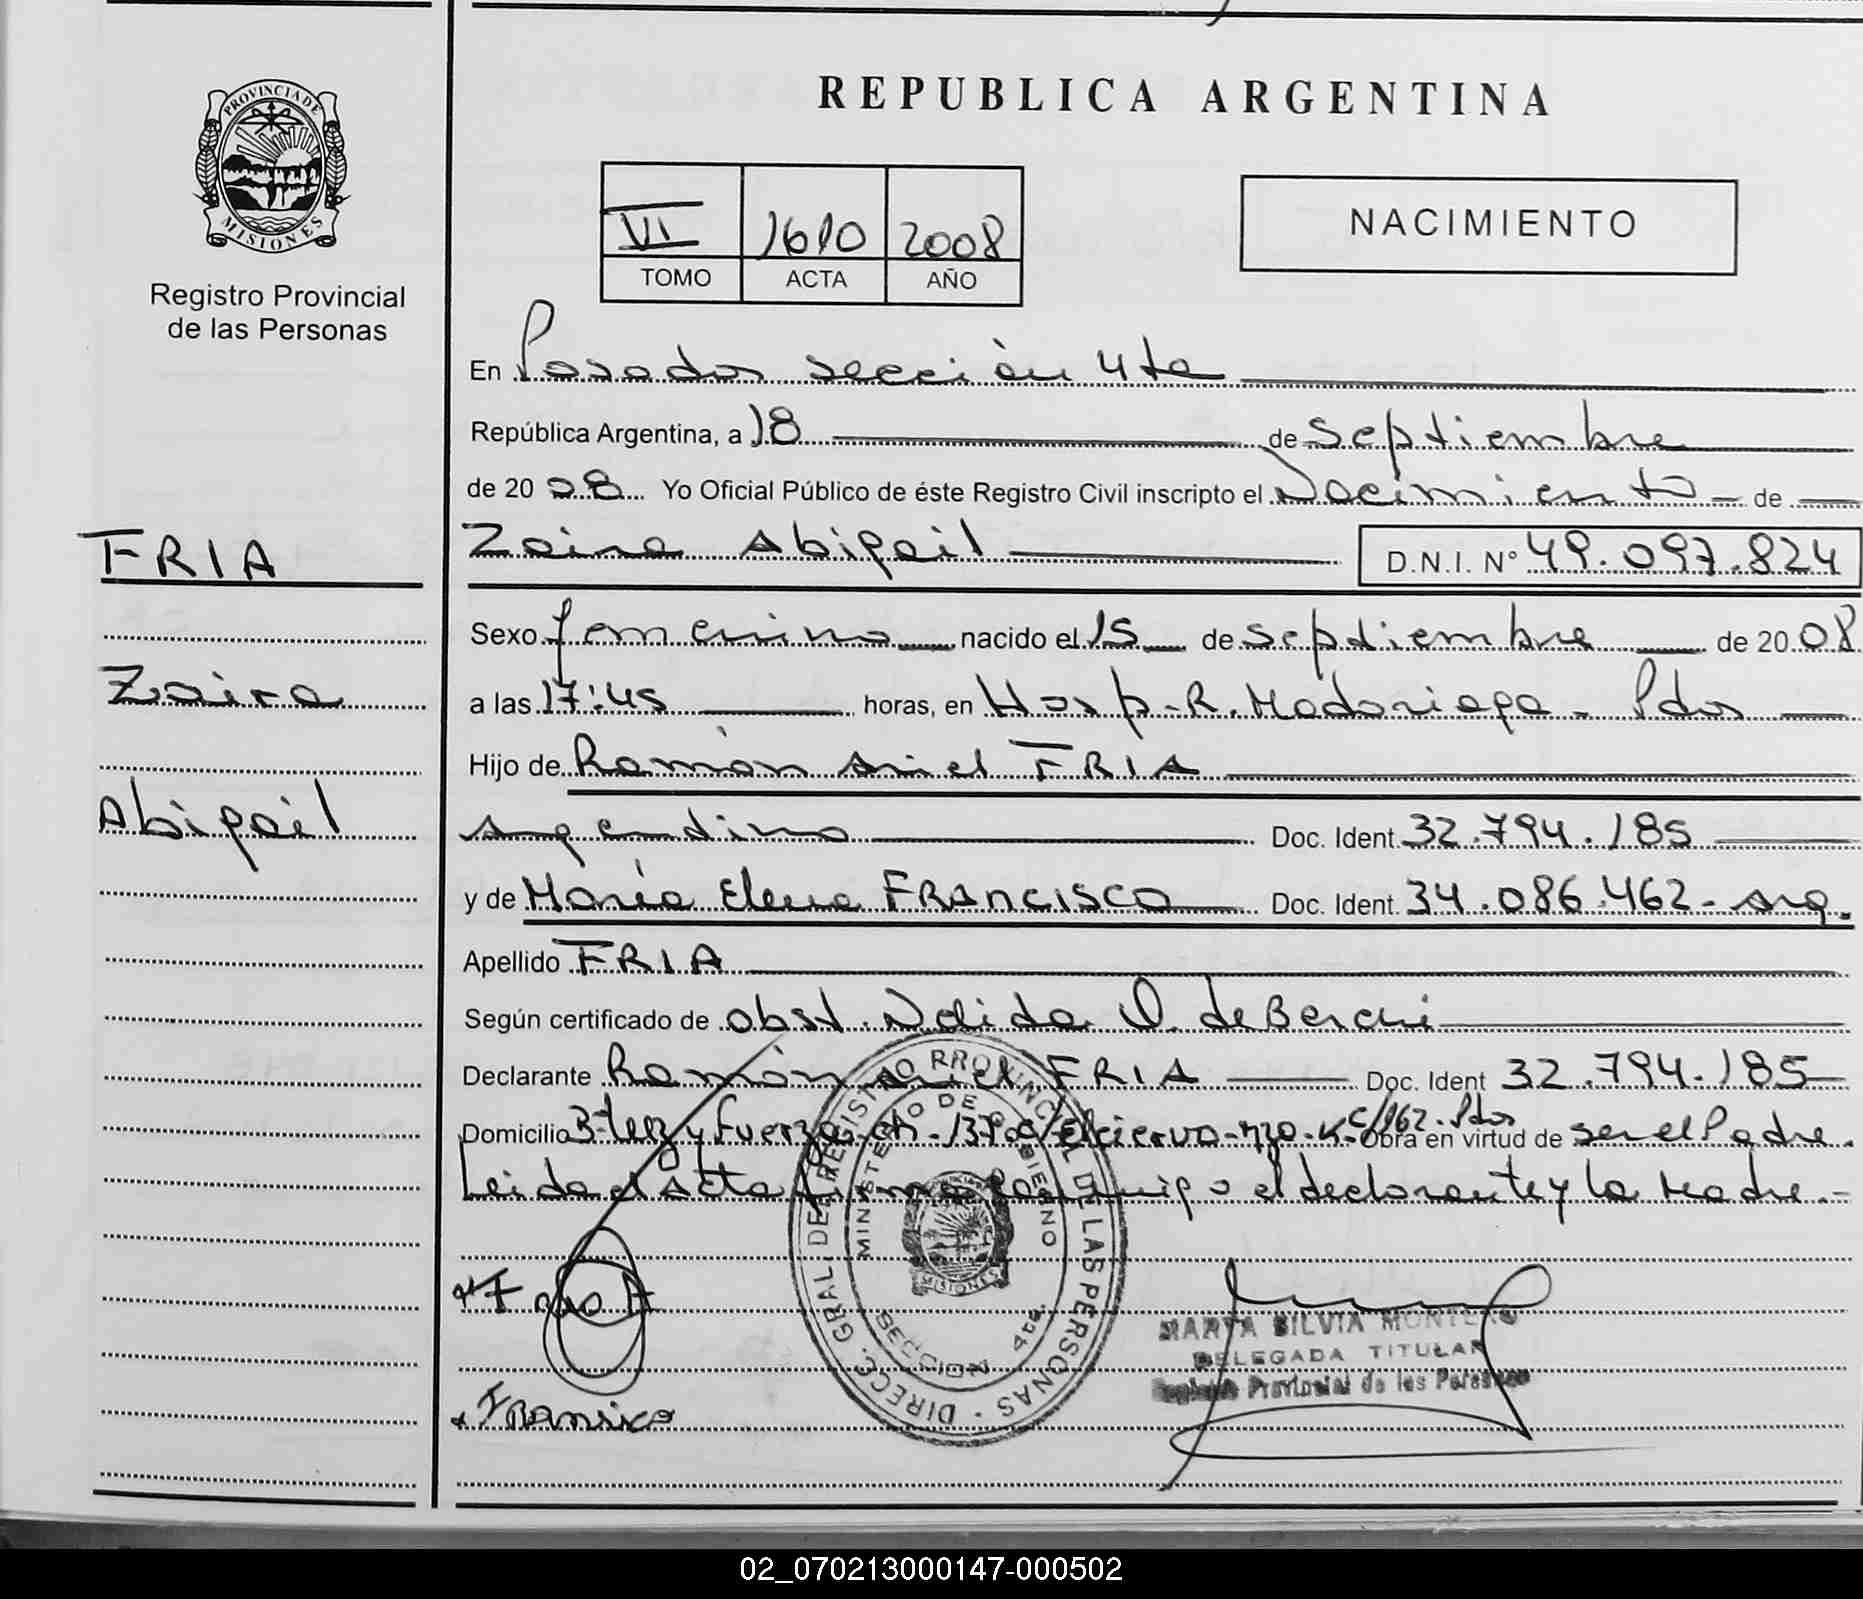 PROVINCIA DE
MISIONES
Registro Provincial
de las Personas
REPUBLICA ARGENTINA
VI 1610 2008
TOMO ACTA AÑO
NACIMIENTO
En Posadas sección 4ta
República Argentina, a 18 de septiembre
de 20 08 Yo Oficial Público de éste Registro Civil inscripto el Nacimiento de
Zaira Abigail D.N.I. Nº 49.097.824
FRIA
Zaira
Abigail
Sexo femenino nacido el 15 de septiembre de 20 08
a las 17:45 horas, en Hosp. R. Madariaga - Pdas
Hijo de Ramón Ariel FRIA
argentino Doc. Ident. 32.794.185
y de María Elena FRANCISCO Doc. Ident. 34.086.462 - arg.
Apellido FRIA
Según certificado de obst. Nelida O. de Berchi
Declarante Ramón Ariel FRIA Doc. Ident 32.794.185
Domicilio y Fuerza ch. 137 Obra en virtud de ser el Padre.
Leida el Acta firma conmigo el declarante y la Madre.-
DIRECC. GRAL DEL REGISTRO PROVINCIAL DE LAS PERSONAS
MINISTERIO DE GOBIERNO
MISIONES
SECCION 4ta.
MARTA SILVIA
DELEGADA TITULAR
Registro Provincial de las Personas
02_070213000147-000502